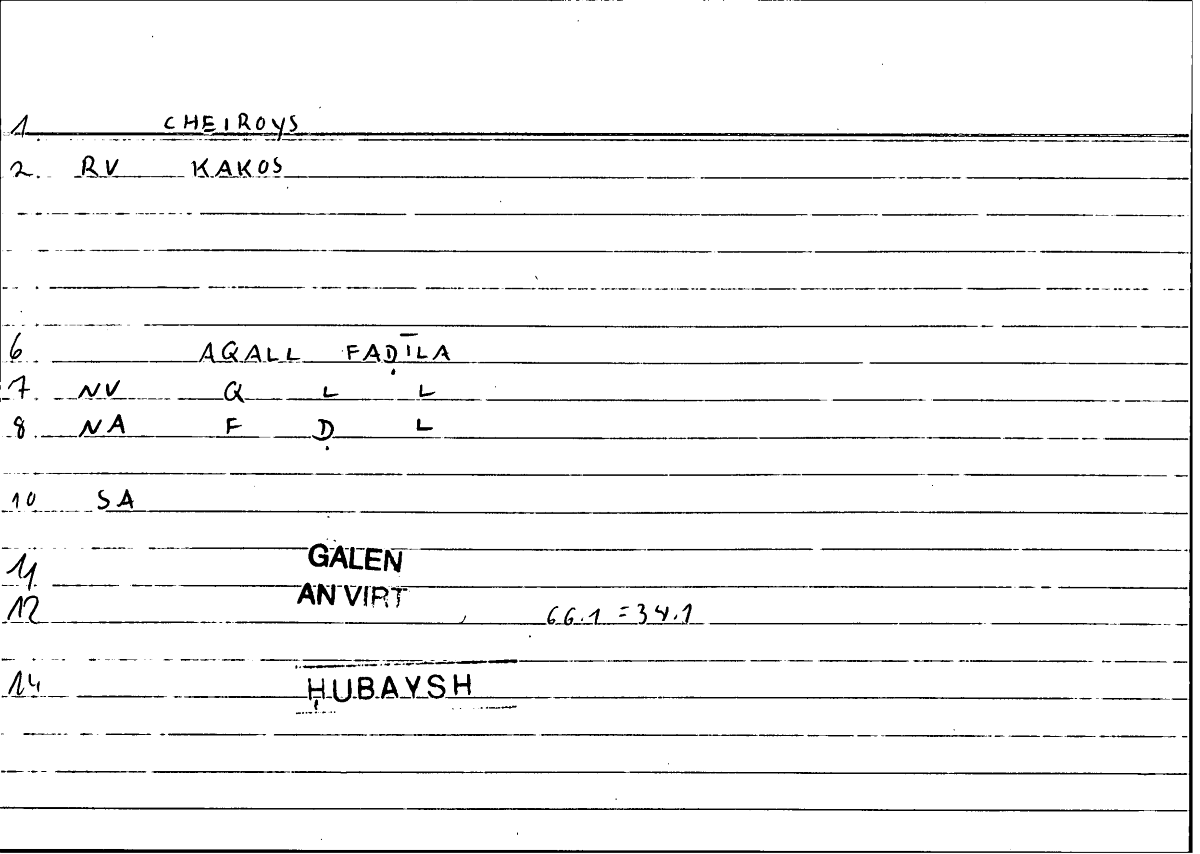 1 CHEIROYS
2. RV KAKOS
6 AQALL FAḌĪLA
7. NV Q L L
8 NA F Ḍ L
10 SA
11 GALEN
12 AN VIRT 66.1 = 34.1
14 ḤUBAYSH